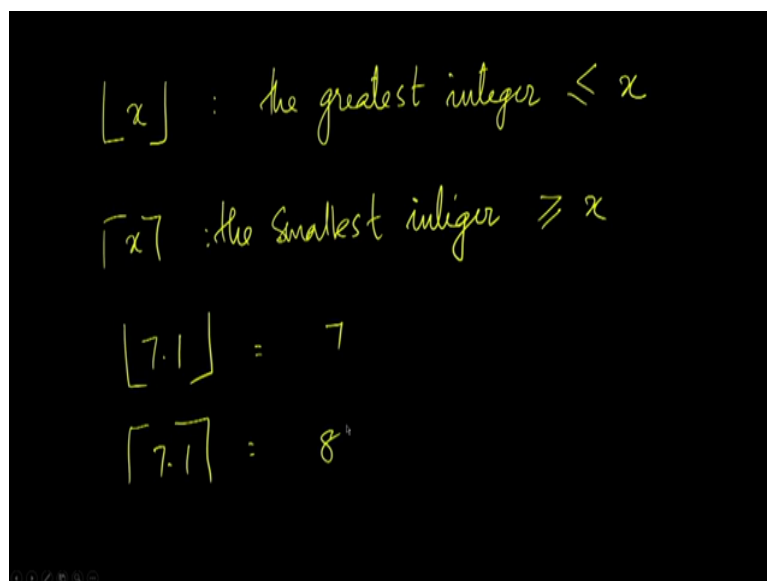 ⌊x⌋ : the greatest integer ≤ x
⌈x⌉ : the smallest integer ≥ x
⌊7.1⌋ = 7
⌈7.1⌉ = 8